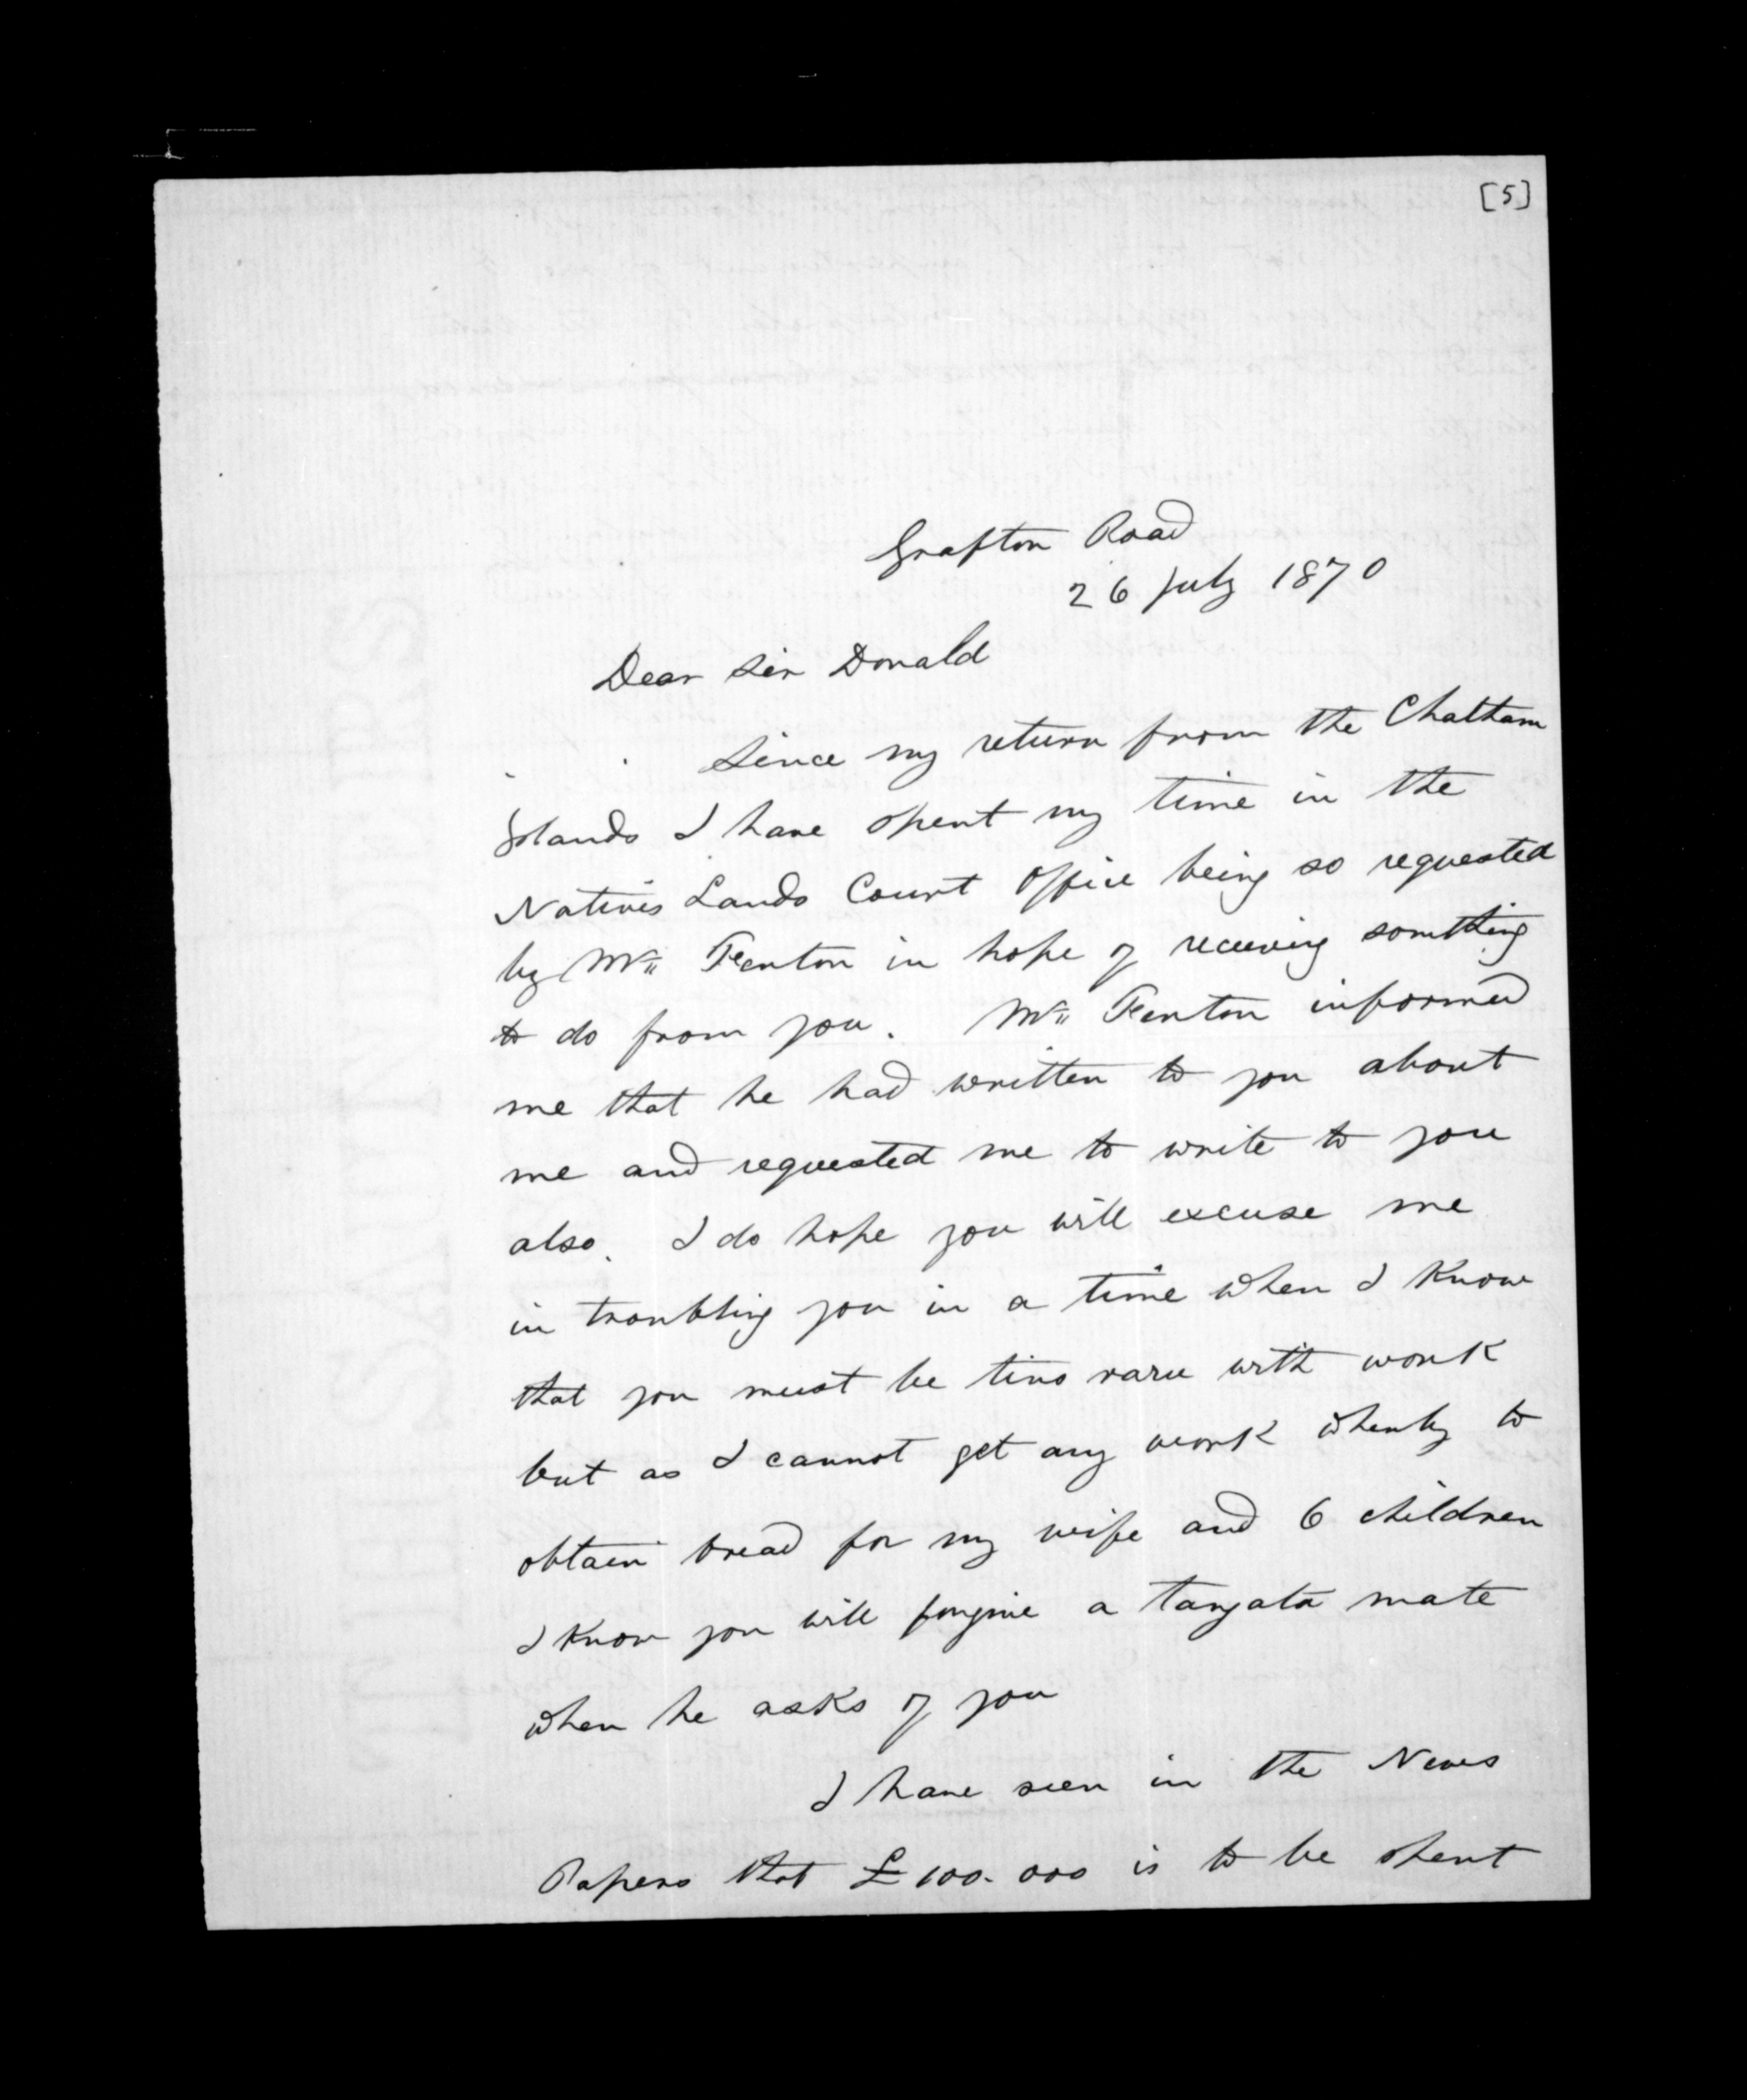 [5]
Grafton Road
26 July 1870
Dear Sir Donald
Since my return from the Chatham
Islands I have spent my time in the
Natives Lands Court Office being so requested
by Mr Fenton in hope of receiving something
to do from you. Mr Fenton informed
me that he had written to you about
me and requested me to write to you
also. I do hope you will excuse me
in troubling you in a time when I know
that you must be tino raru with work
but as I cannot get any work whereby to
obtain bread for my wife and 6 children
I know you will forgive a tangata mate
when he asks of you
I have seen in the News
Papers that £100.000 is to be spent